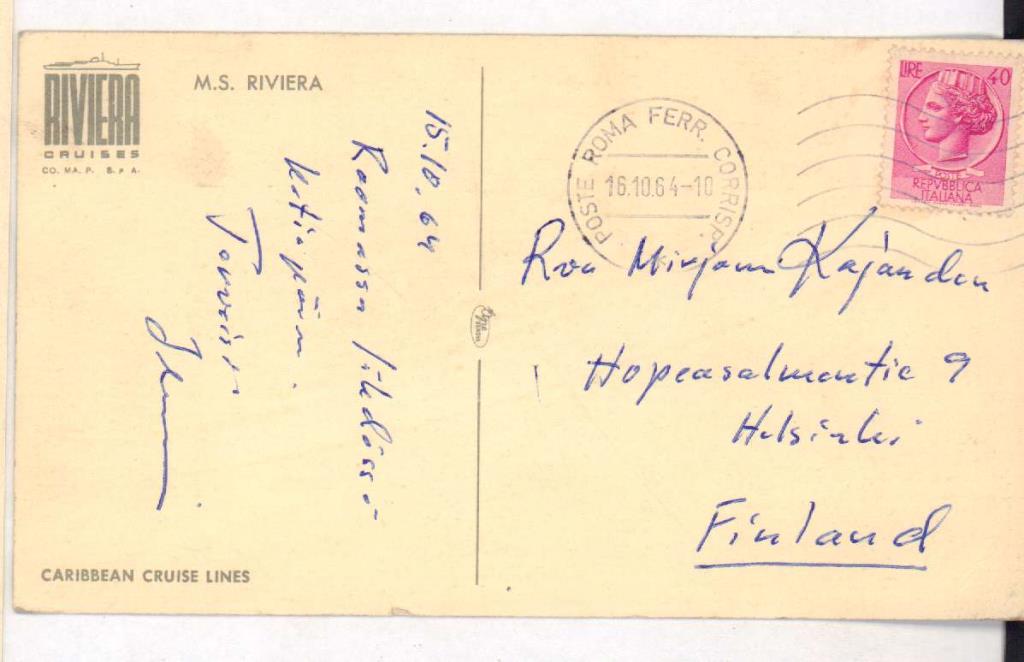 RIVIERA
CRUISES
CO. MA. P. S. p A.
M.S. RIVIERA
15.10.64
Roomassa lähdössä
kotiapäin.
Terveisi
CARIBBEAN CRUISE LINES
POSTE ROMA FERR. CORRISP.
16.10.64-10
LIRE 40
POSTE
REPVBBLICA
ITALIANA
Rva Mirjam Kajander
Hopeasalmentie 9
Helsinki
Finland